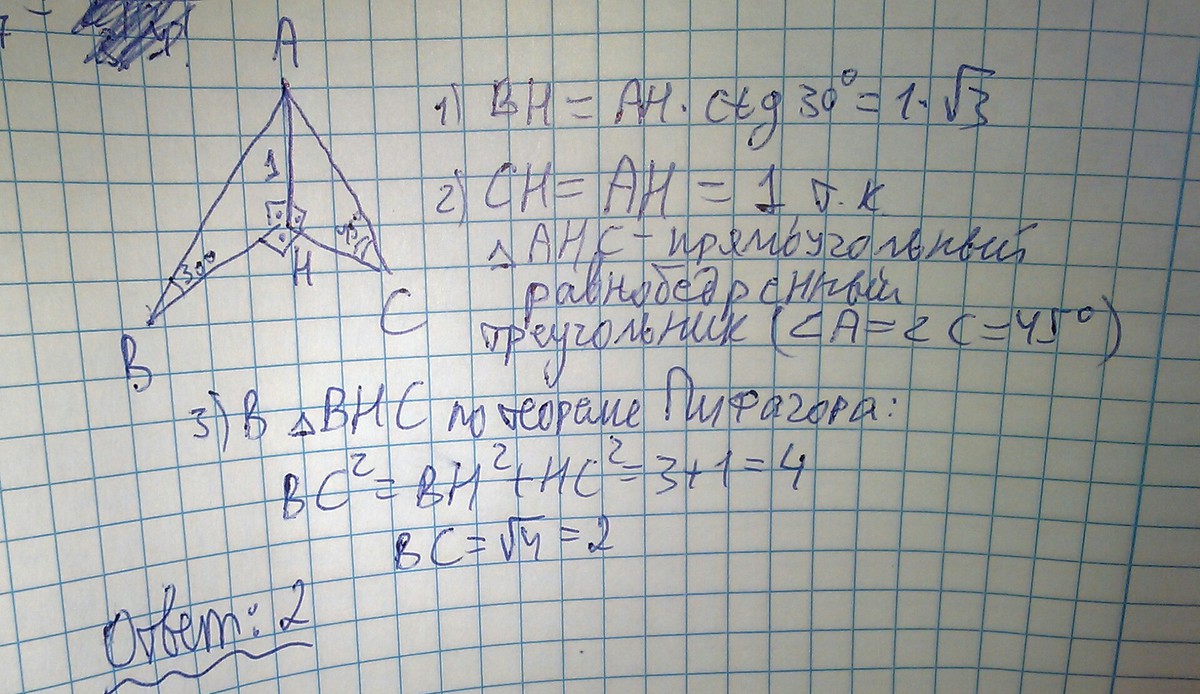 A
1
30°
45°
H
B
C
1) BH = AH · ctg 30° = 1 · √3
2) CH = AH = 1 т.к.
△ AHC - прямоугольный
равнобедренный
треугольник (∠A = ∠C = 45°)
3) В △BHC по теореме Пифагора:
BC² = BH² + HC² = 3 + 1 = 4
BC = √4 = 2
Ответ: 2